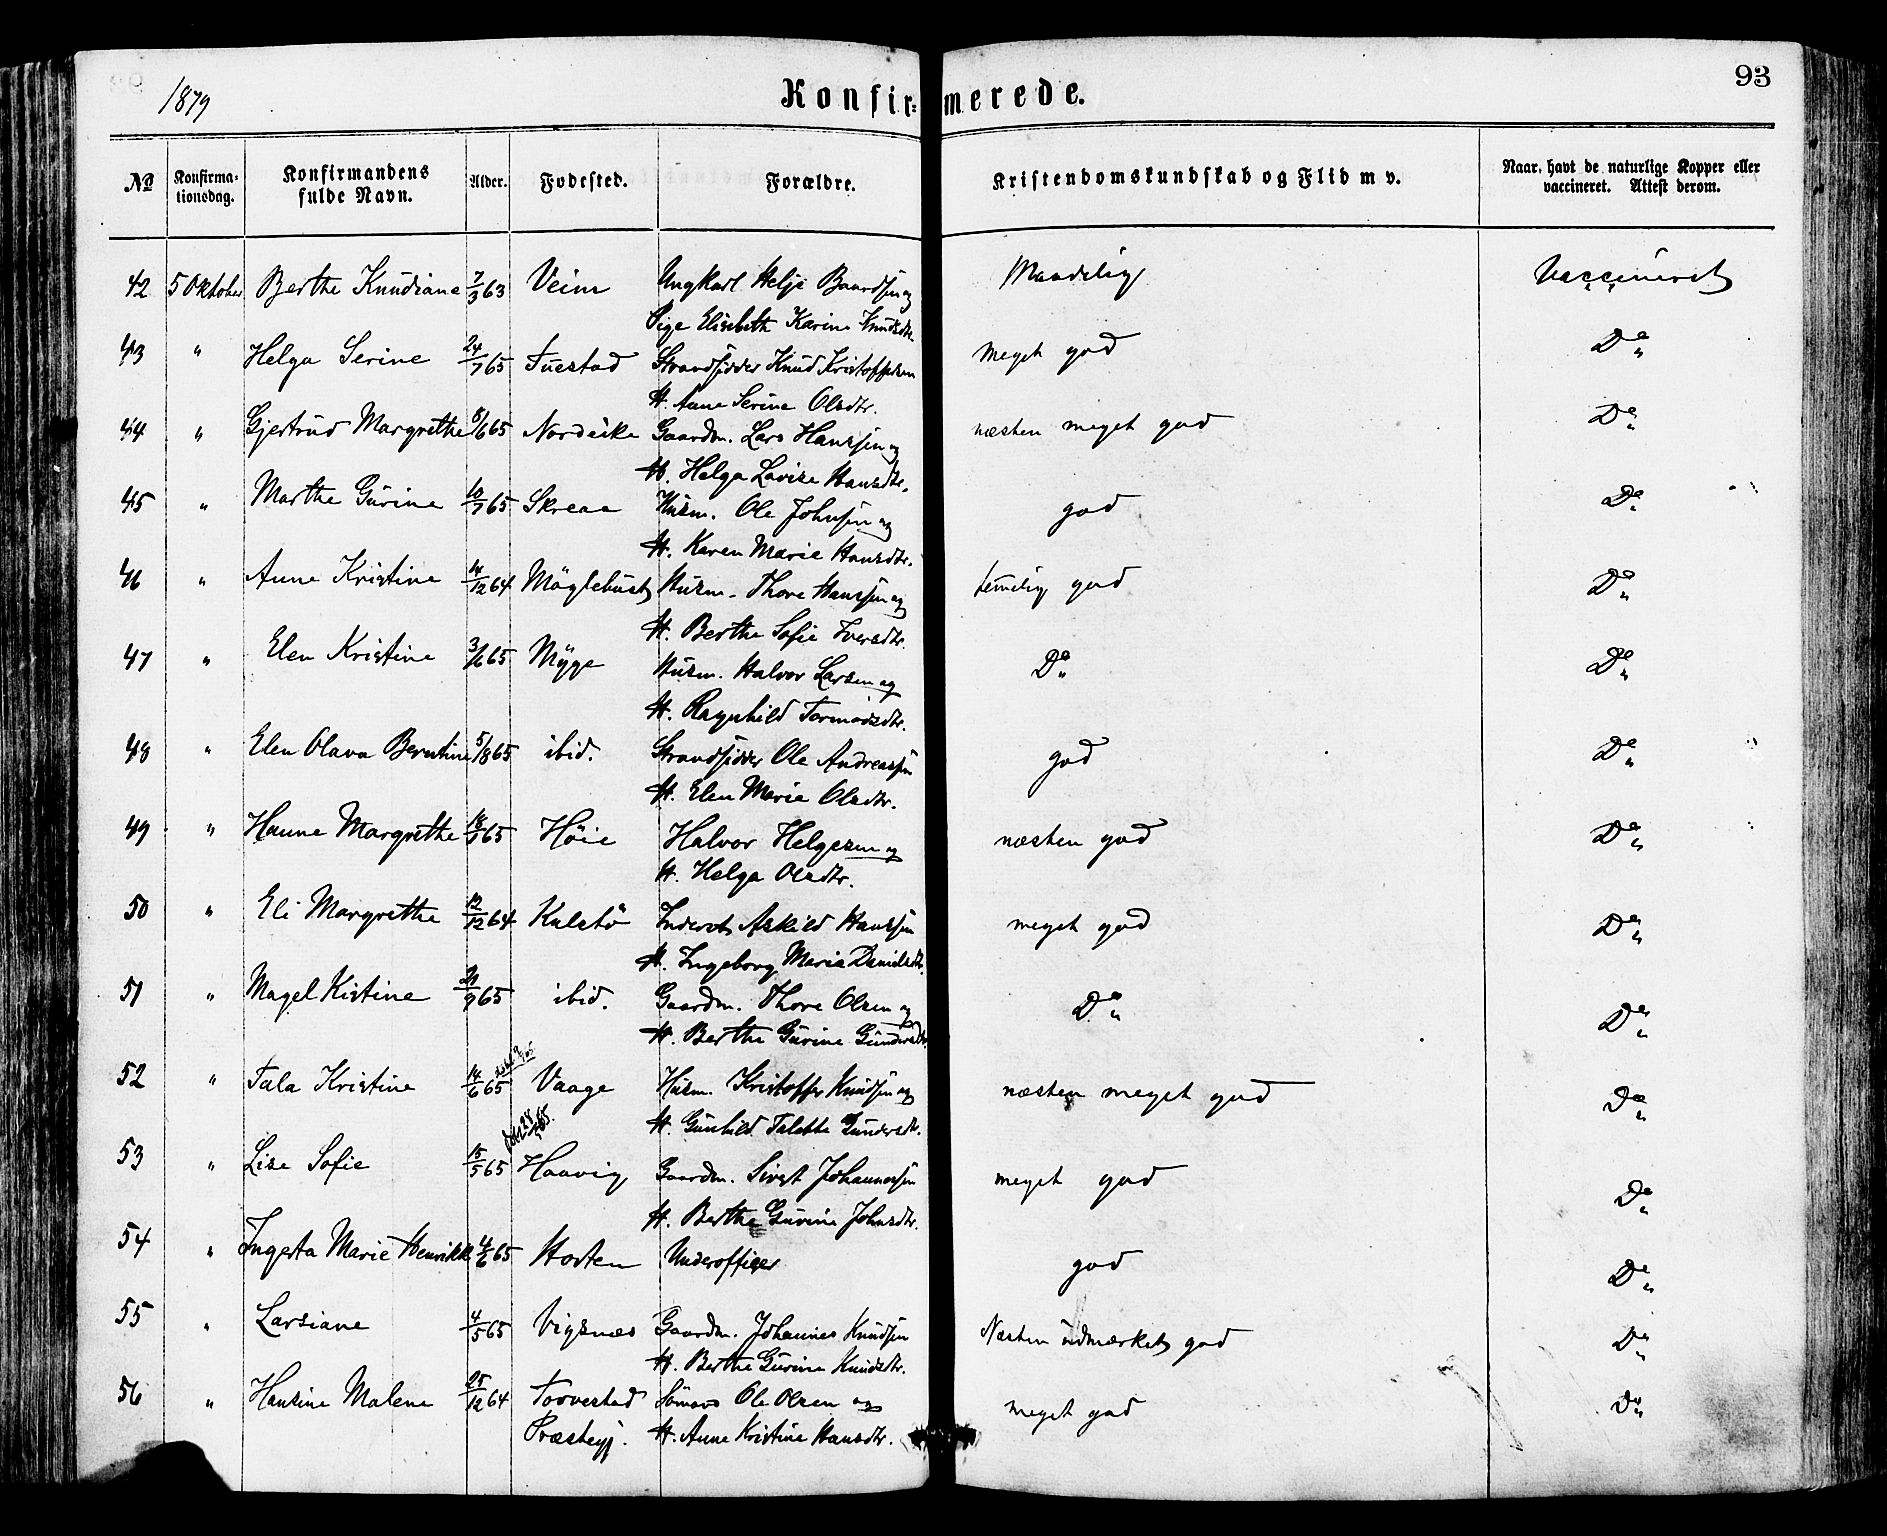 1879
Konfirmerede.
93
No
Konfirma-
tionsdag.
Konfirmandens
fulde Navn.
Alder.
Fødested.
Forældre.
Kristendomskundskab og Flid m v.
Naar. havt de naturlige Kopper eller
vaccineret. Attest derom.
42 5 Oktober Berthe Knudiane 7/3 63 Veim Ungkarl Helje Baardsen og Maadelig Vaccineret
Pige Elisebeth Karine Knudsdtr.
43 " Helga Serine 24/7 65 Tuestad Strandsidder Knud Kristoffersen meget god Do
H. Anne Serine Olsdtr.
44 " Gjertrud Margrethe 8/6 65 Nordeike Gaardm. Lars Hanssen og næsten meget god Do
H. Helga Lovise Hansdtr.
45 " Marthe Gurine 10/7 65 Skreaa Husm. Ole Johnsen og god Do
H. Karen Marie Hansdtr.
46 " Anne Kristine 14/12 64 Møglebust Husm. Thore Hanssen og temmelig god Do
H. Berthe Sofie Iversdtr.
47 " Elen Kristine 3/6 65 Myge Husm. Halvor Larsen og Do Do
H. Ragnhild Tormodsdtr.
48 " Elen Olava Berntine 5/8 65 ibid. Strandsidder Ole Andreassen god Do
H. Elen Marie Olsdtr.
49 " Hanne Margrethe 18/9 65 Høie Halvor Helgesen og næsten god Do
H. Helga Olsdtr.
50 " Eli Margrethe 12/12 64 Kalstø Inderst Askild Hanssen meget god Do
H. Ingeborg Marie Danielsdtr.
51 " Magel Kistine 21/9 65 ibid. Gaardm. Thore Olsen og Do Do
H. Berthe Gurine Gundersdtr.
52 " Tala Kristine 14/6 65 Vaage Husm. Kristoffer Knudsen og næsten meget god Do
H. Gunhild Talette Gundersdtr.
53 " Lise Sofie 15/5 65 Haavig Gaardm. Sivert Johannessen meget god Do
H. Berthe Gurine Johnsdtr.
54 " Ingesta Marie Henrikke 4/6 65 Horten Underofficer god Do
55 " Larsiane 4/5 65 Vigsnæs Gaardm. Johannes Knudsen Næsten udmærket god Do
H. Berthe Gurine Knudsdtr.
56 " Hansine Malene 25/12 64 Torvestad Sømand Ole Olsen og meget god Do
Præstegj. H. Anne Kristine Hansdtr.